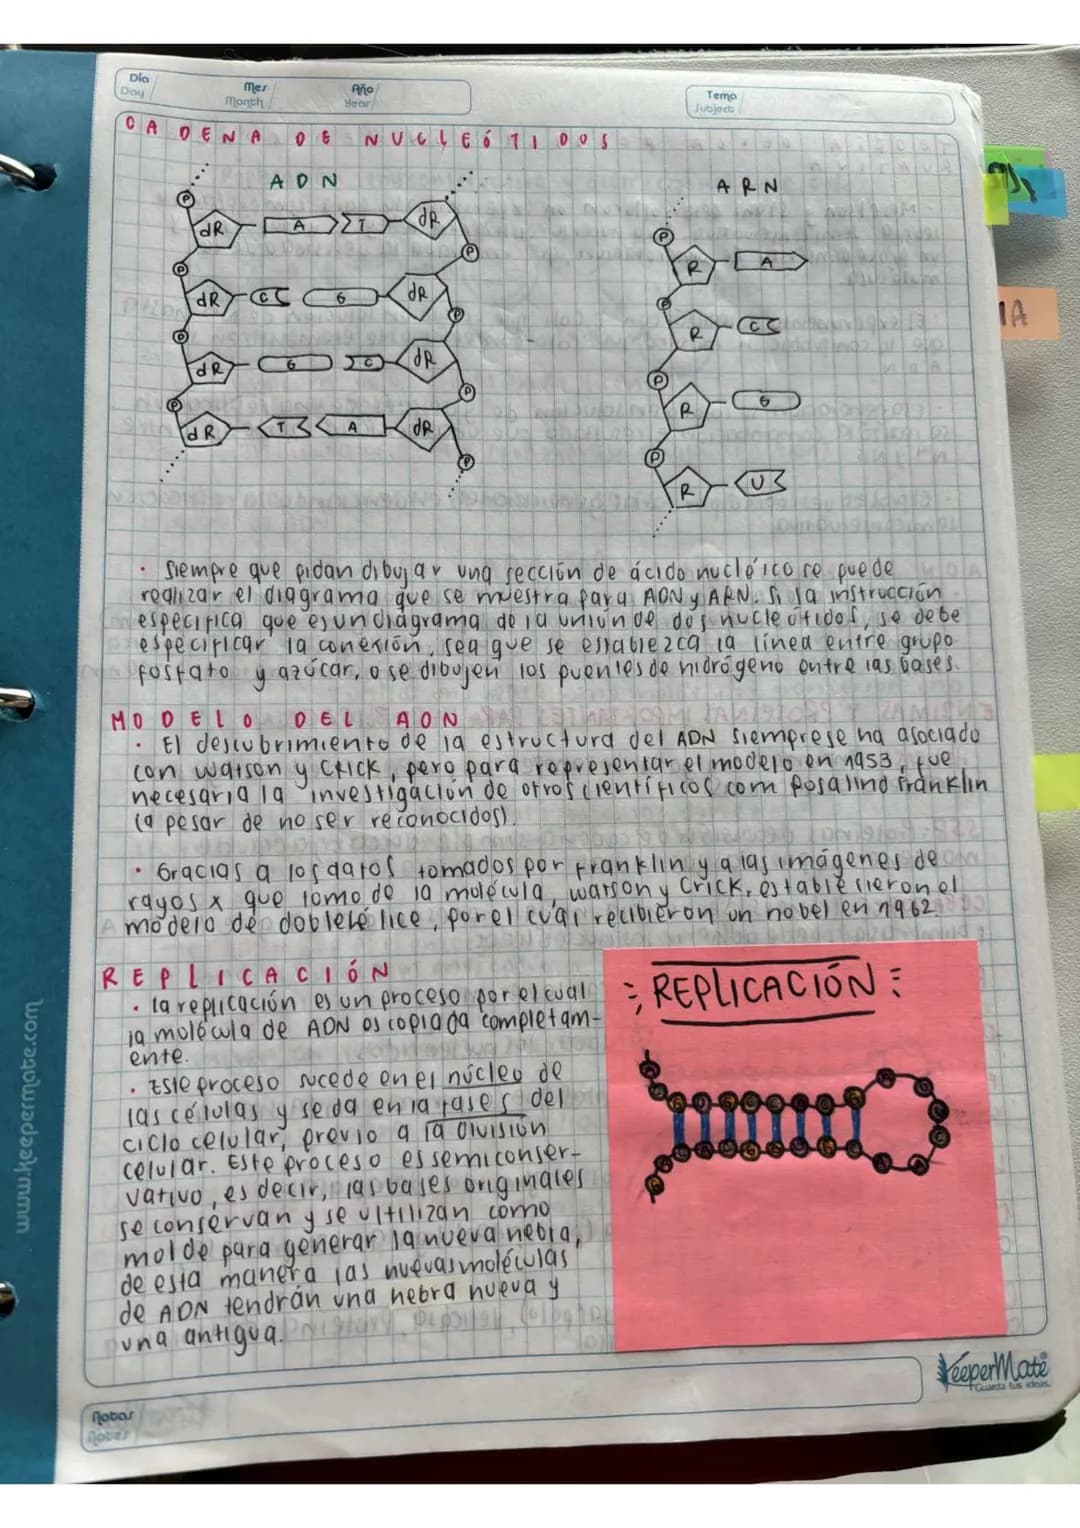 Día Day
Mes Month
Año Year
Tema Subject
CADENA DE NUCLEÓTIDOS
ADN
ARN
P
dR A T dR
P
P
dR C G dR
P
P
dR G C dR
P
P
dR T A dR
P
P
R A
P
R C
P
R G
P
R U
IA
· Siempre que pidan dibujar una sección de ácido nucléico se puede
realizar el diagrama que se muestra para ADN y ARN. Si la instrucción
especifica que es un diagrama de la unión de dos nucleótidos, se debe
especificar la conexión, sea que se establezca la línea entre grupo
fosfato y azúcar, o se dibujen los puentes de hidrógeno entre las bases.
MODELO DEL ADN
· El descubrimiento de la estructura del ADN siempre se ha asociado
con Watson y Crick, pero para representar el modelo en 1953, fue
necesaria la investigación de otros científicos com Rosalind Franklin
(a pesar de no ser reconocidos).
· Gracias a los datos tomados por Franklin y a las imágenes de
rayos x que tomo de la molécula, Watson y Crick, establecieron el
modelo de doble hélice, por el cual recibieron un nobel en 1962
REPLICACIÓN
· la replicación es un proceso por el cual
la molécula de ADN es copiada completam-
ente.
· Este proceso sucede en el núcleo de
las células y se da en la fase S del
ciclo celular, previo a la división
celular. Este proceso es semiconser-
vativo, es decir, las bases originales
se conservan y se ultilizan como
molde para generar la nueva hebra,
de esta manera las nuevas moléculas
de ADN tendrán una hebra nueva y
una antigua.
REPLICACIÓN
www.keepermate.com
KeeperMate
Guarda tus ideas.
Notas
Notes